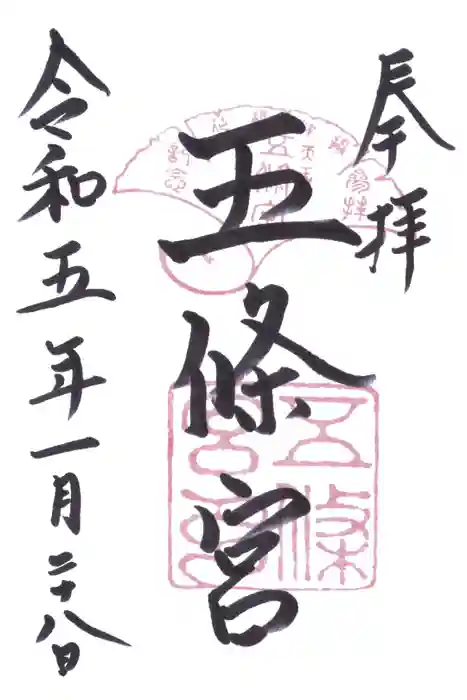 奉拝
五條宮
令和五年一月二十八日